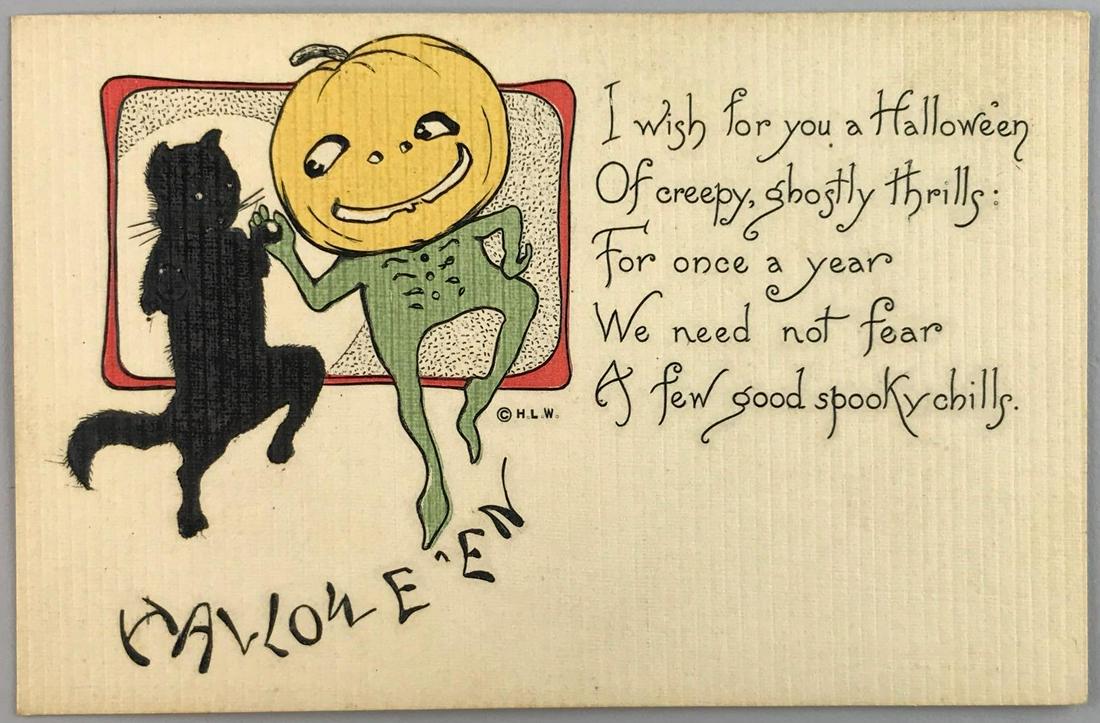 I wish for you a Hallowe'en
Of creepy, ghostly thrills:
For once a year
We need not fear
A few good spooky chills.
© H.L.W.
HALLOWE'EN